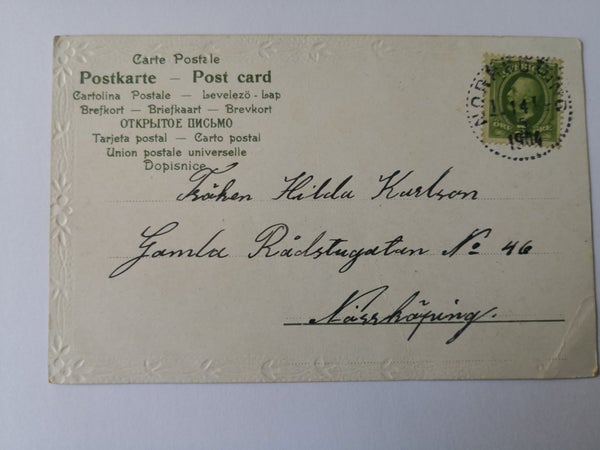 Carte Postale
Postkarte — Post card
Cartolina Postale — Levelező-Lap
Brefkort — Briefkaart — Brevkort
ОТКРЫТОЕ ПИСЬМО
Tarjeta postal — Carto postal
Union postale universelle
Dopisnice
NORRKÖPING
14
1904
ÖRE
Fröken Hilda Karlson
Gamla Rådstugatan No 46
Norrköping.